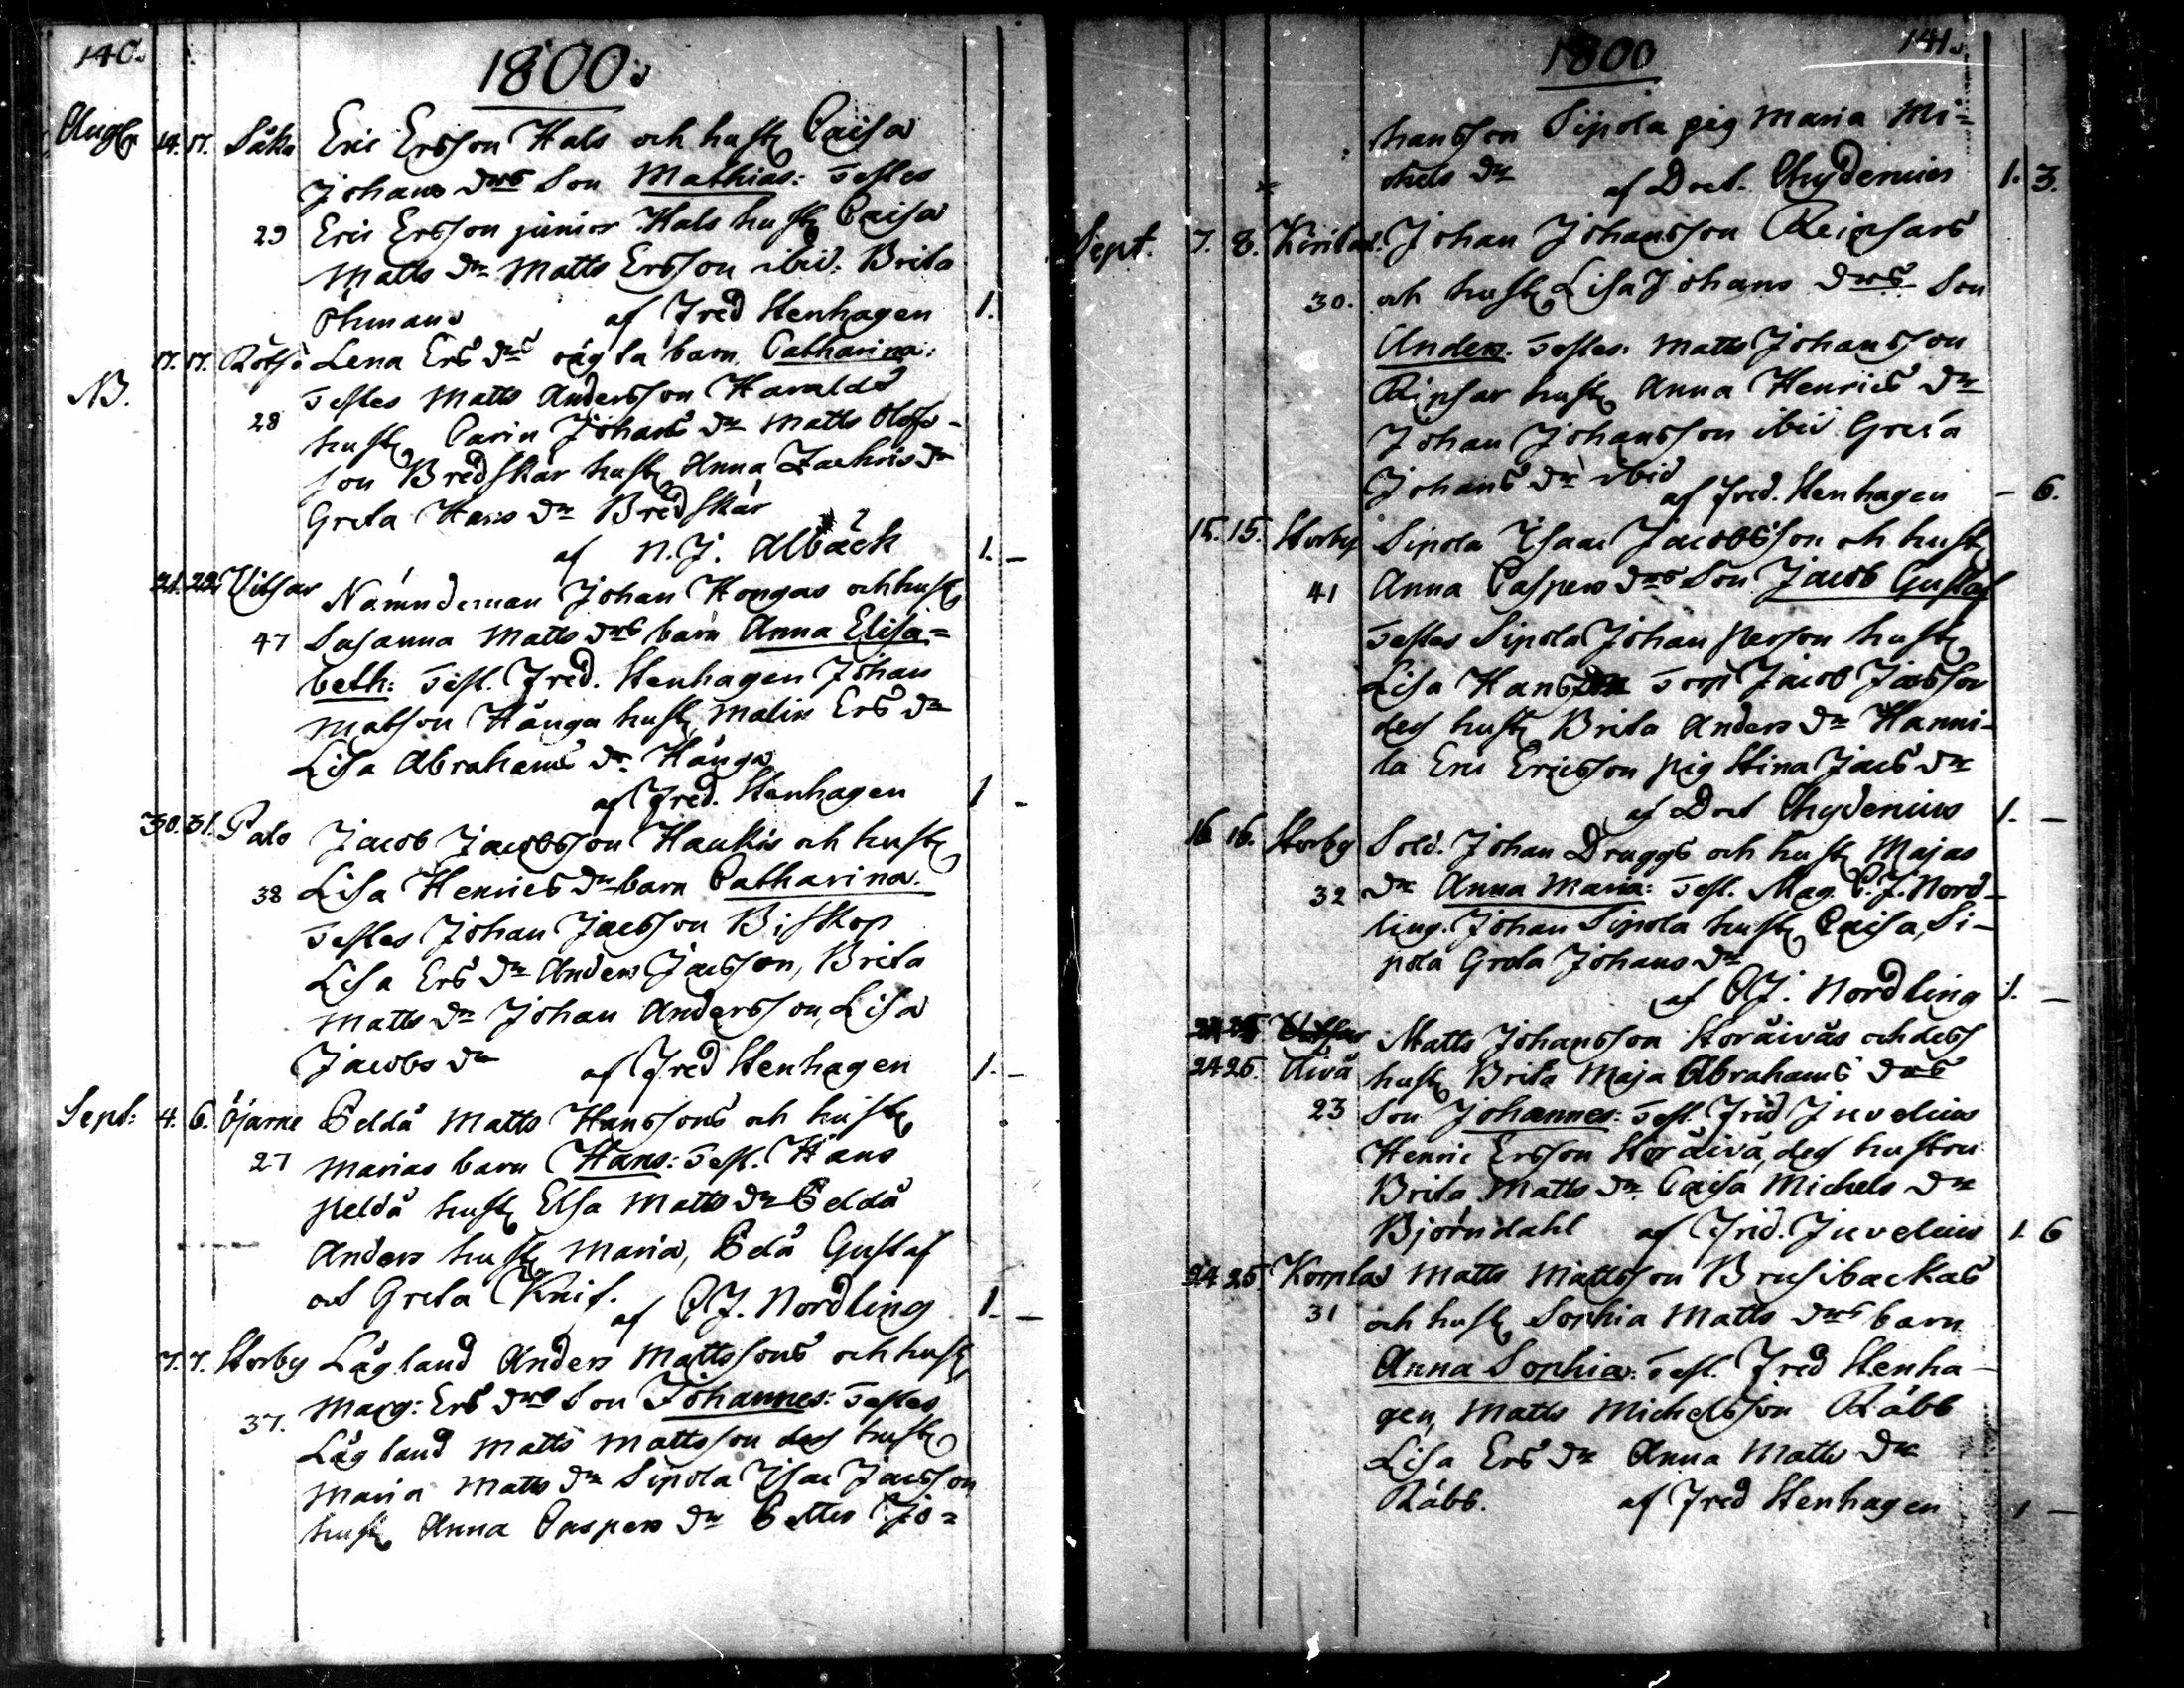 140.
1800.
Aug. 14. 17. Såka Eric Ersson Hals och hust Caisa
Johans drs Son Mathias: Testes
29 Eric Ersson junior Hals hust Caisa
Matts dr Matts Ersson ibid: Brita
Öhmans af Fred Stenhagen 1.
17. 17. Rötsö Lena Ers drs oägta barn Catharina:
NB. Testes Matts Andersson Haralds
28 hust Carin Johans dr Matts Olofs-
son Bredskär hust Anna Zachris dr
Greta Hans dr Bredskär
af N. J. Albäck 1. -
21. 22. Vitsar Nämndeman Johan Hongas och hust
47 Susanna Matts drs barn Anna Elisa=
beth: Test. Fred. Stenhagen Johan
Matsson Hånga hust Malin Ers dr
Lisa Abrahams dr Hånga
af Fred. Stenhagen 1 -
30. 31. Palo Jacob Jacobsson Haukis och hust
38 Lisa Henrics dr barn Catharina.
Testes Johan Jacsson Biskop
Lisa Ers dr Anders Jacsson, Brita
Matts dr Johan Andersson, Lisa
Jacobs dr af Fred Stenhagen 1. -
Sept: 4. 6. Öjarne Peldå Matts Hanssons och hust
27 Marias barn Hans: Test. Hans
Peldå hust Elsa Matts dr Peldå
Anders hust Maria, Pelå Gustaf
och Greta Knif. af C.J. Nordling 1. -
7. 7. Storby Lågland Anders Mattssons och hust
37. Marg: Ers drs Son Johannes: Testes
Lågland Matts Mattsson des hust
Maria Matts dr Sipola Isac Jacsson
hust Anna Caspers dr Petter Jo=
1800
141.
hansson Sipola pig Maria Mi=
chels dr af Doct. Chydenius 1. 3.
Sept. 7. 8. Kirilax: Johan Johansson Reipsars
30. och hust Lisa Johans drs Son
Anders. Testes: Matts Johansson
Ripsar hust Anna Henrics dr
Johan Johansson ibid Greta
Johans dr ibid af Fred. Stenhagen - 6.
15. 15. Storby Sipola Isaac Jacobsson och hust
41 Anna Caspers drs Son Jacob Gustaf
Testes Sipola Johan Person hust
Lisa Hans dr Torp Jacob Jacsson
des hust Brita Anders dr Hanni-
la Eric Ericsson pig Stina Jacs dr
af Doct Chydenius 1. -
16 16. Storby Sold. Johan Druggs och hust Majas
32 dr Anna Maria: Test. Mag. C. J. Nord-
ling. Johan Sipola hust Caisa Si-
pola Greta Johans dr
af C.J. Nordling 1. -
Matts Johansson Storåivås och dess
24 25. Åivå hust Brita Maja Abrahams drs
23 Son Johannes: Test. Frid Juvelius
Henric Ersson Storåivå, des hustru
Brita Matts dr Caisa Michels dr
Björndahl af Frid. Juvelius 1. 6
24 25 Korplax Matts Mattsson Brusibackas
31 och hust Sophia Matts drs barn
Anna Sophia: Test. Fred Stenha-
gen, Matts Michelsson Räbb
Lisa Ers dr Anna Matts dr
Räbb. af Fred Stenhagen 1 -